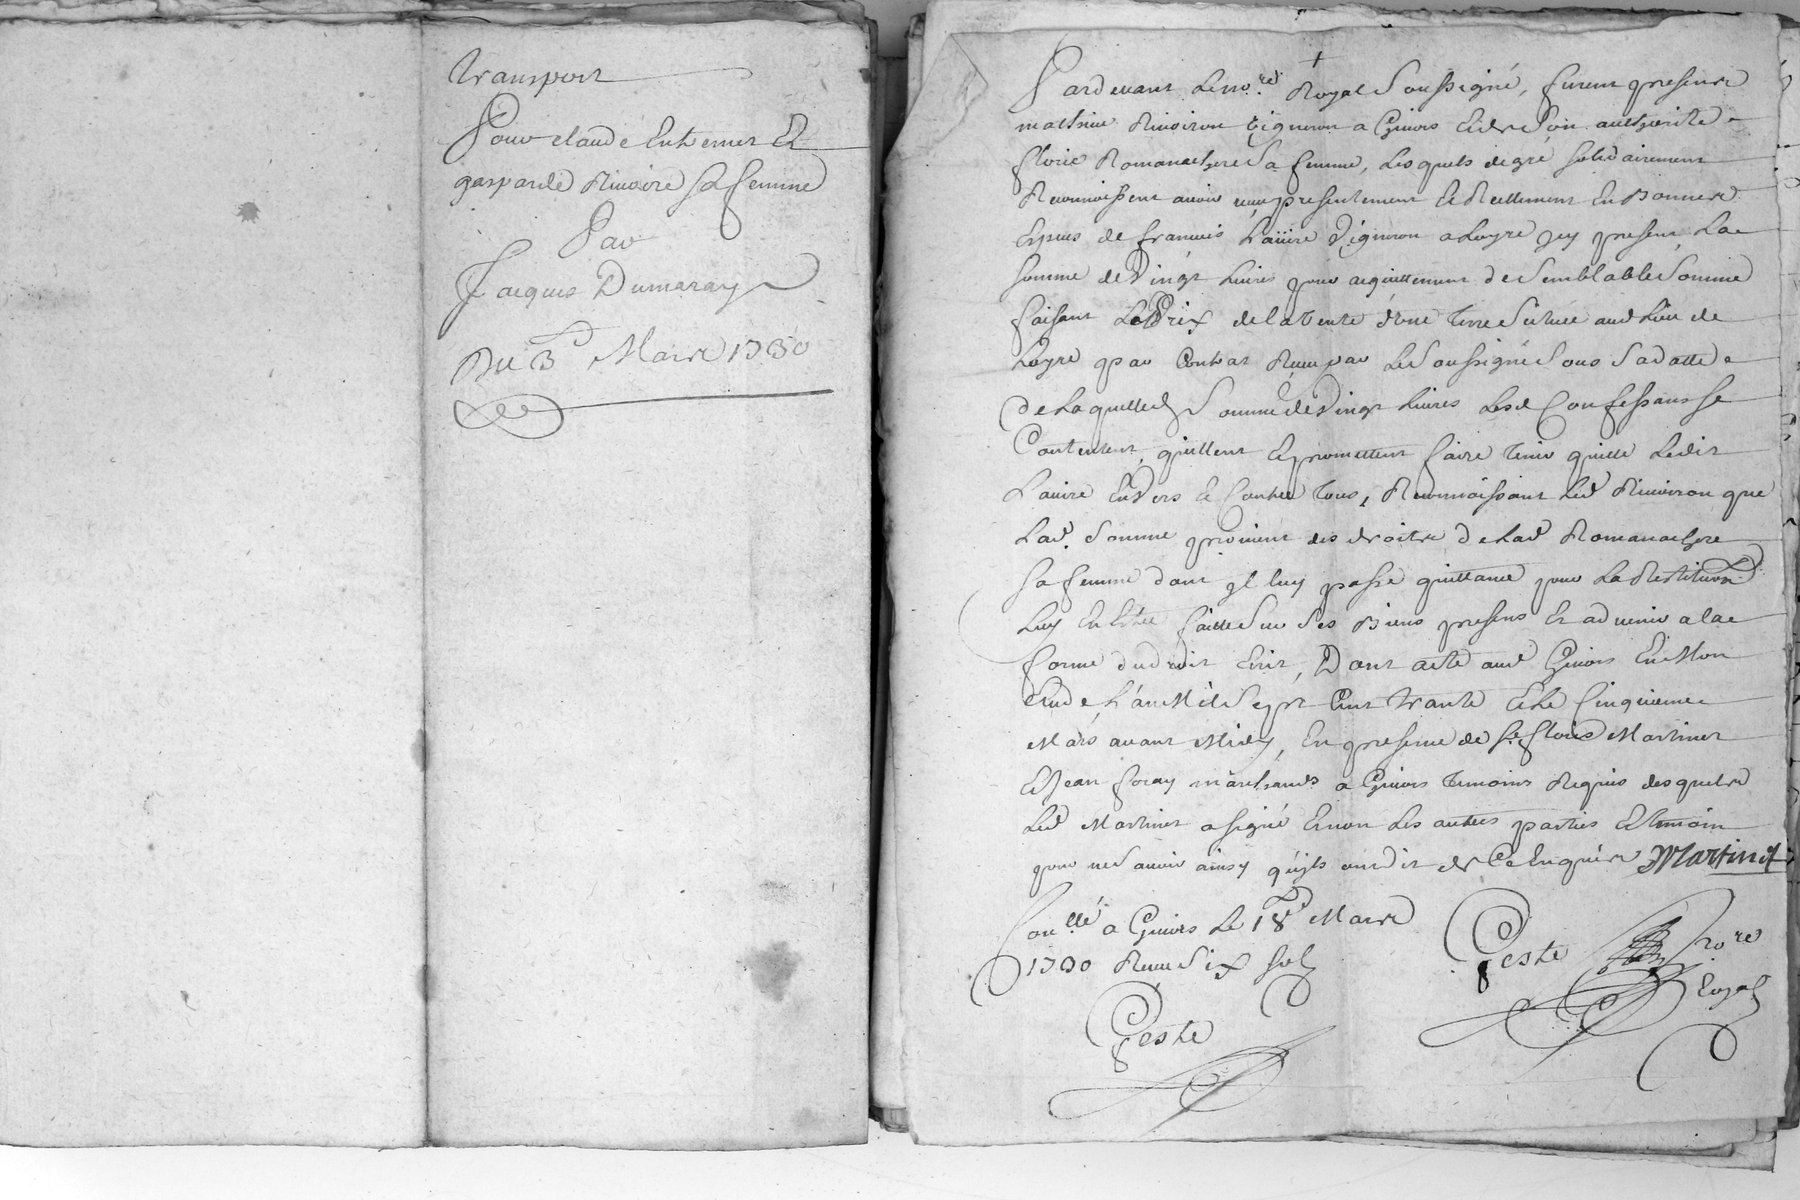 Transport
Pour claude Enthemet Et
gasparde Riuoire sa femme
Par
Jacques Dumaray
Du 3e Mars 1730
Pardeuant Le no.re Royal Soussigné, furent presents
mathieu Riuoiron vigneron a Giuors Et de Son authorité
florie Romanachere Sa femme, Lesquels de gré solidairement
Reconnoissent auoir receu presentement Et Reellement En Bonnes
Especes de francois Lauire Vigneron a Loyre jcy present, La
Somme de Vingt Liures pour acquittement de Semblable Somme
faisant Le Prix de la vente d'vne terre Scituée aud Lieu de
Loyre par Contrat Receu par Le Soussigné Sous Sa datte
de Laquelled Somme de Vingt Liures Lesd Confessans se
Contentent, quittent Et promettent faire tenir quitte Ledit
Lauire EnVers Et Contre tous, Reconnoissant Led Riuoiron que
Lad. Somme prouient des droits de Lad Romanachere
Sa femme dont jl luy passe quittance pour La Restitution
Luy En Estre faitte Sur Ses Biens presens Et aduenir a la
forme du droit Ecrit, Dont acte aud Giuors En Mon
Etude, L'an Mil Sept Cent trante Et Le Cinquieme
Mars auant Midy, En presence de Sr. florie Martinet
Et Jean foray marchands a Giuors temoins Requis desquels
Led Martinet a signé Et non Les autres parties Et temoin
pour ne Sauoir ainsy qu'jls ont dit de Ce Enquis Martinet
Con.llé a Giuors Le 18e Mars
1730 Receu Six Sols
Geste
Geste no.re
Royal